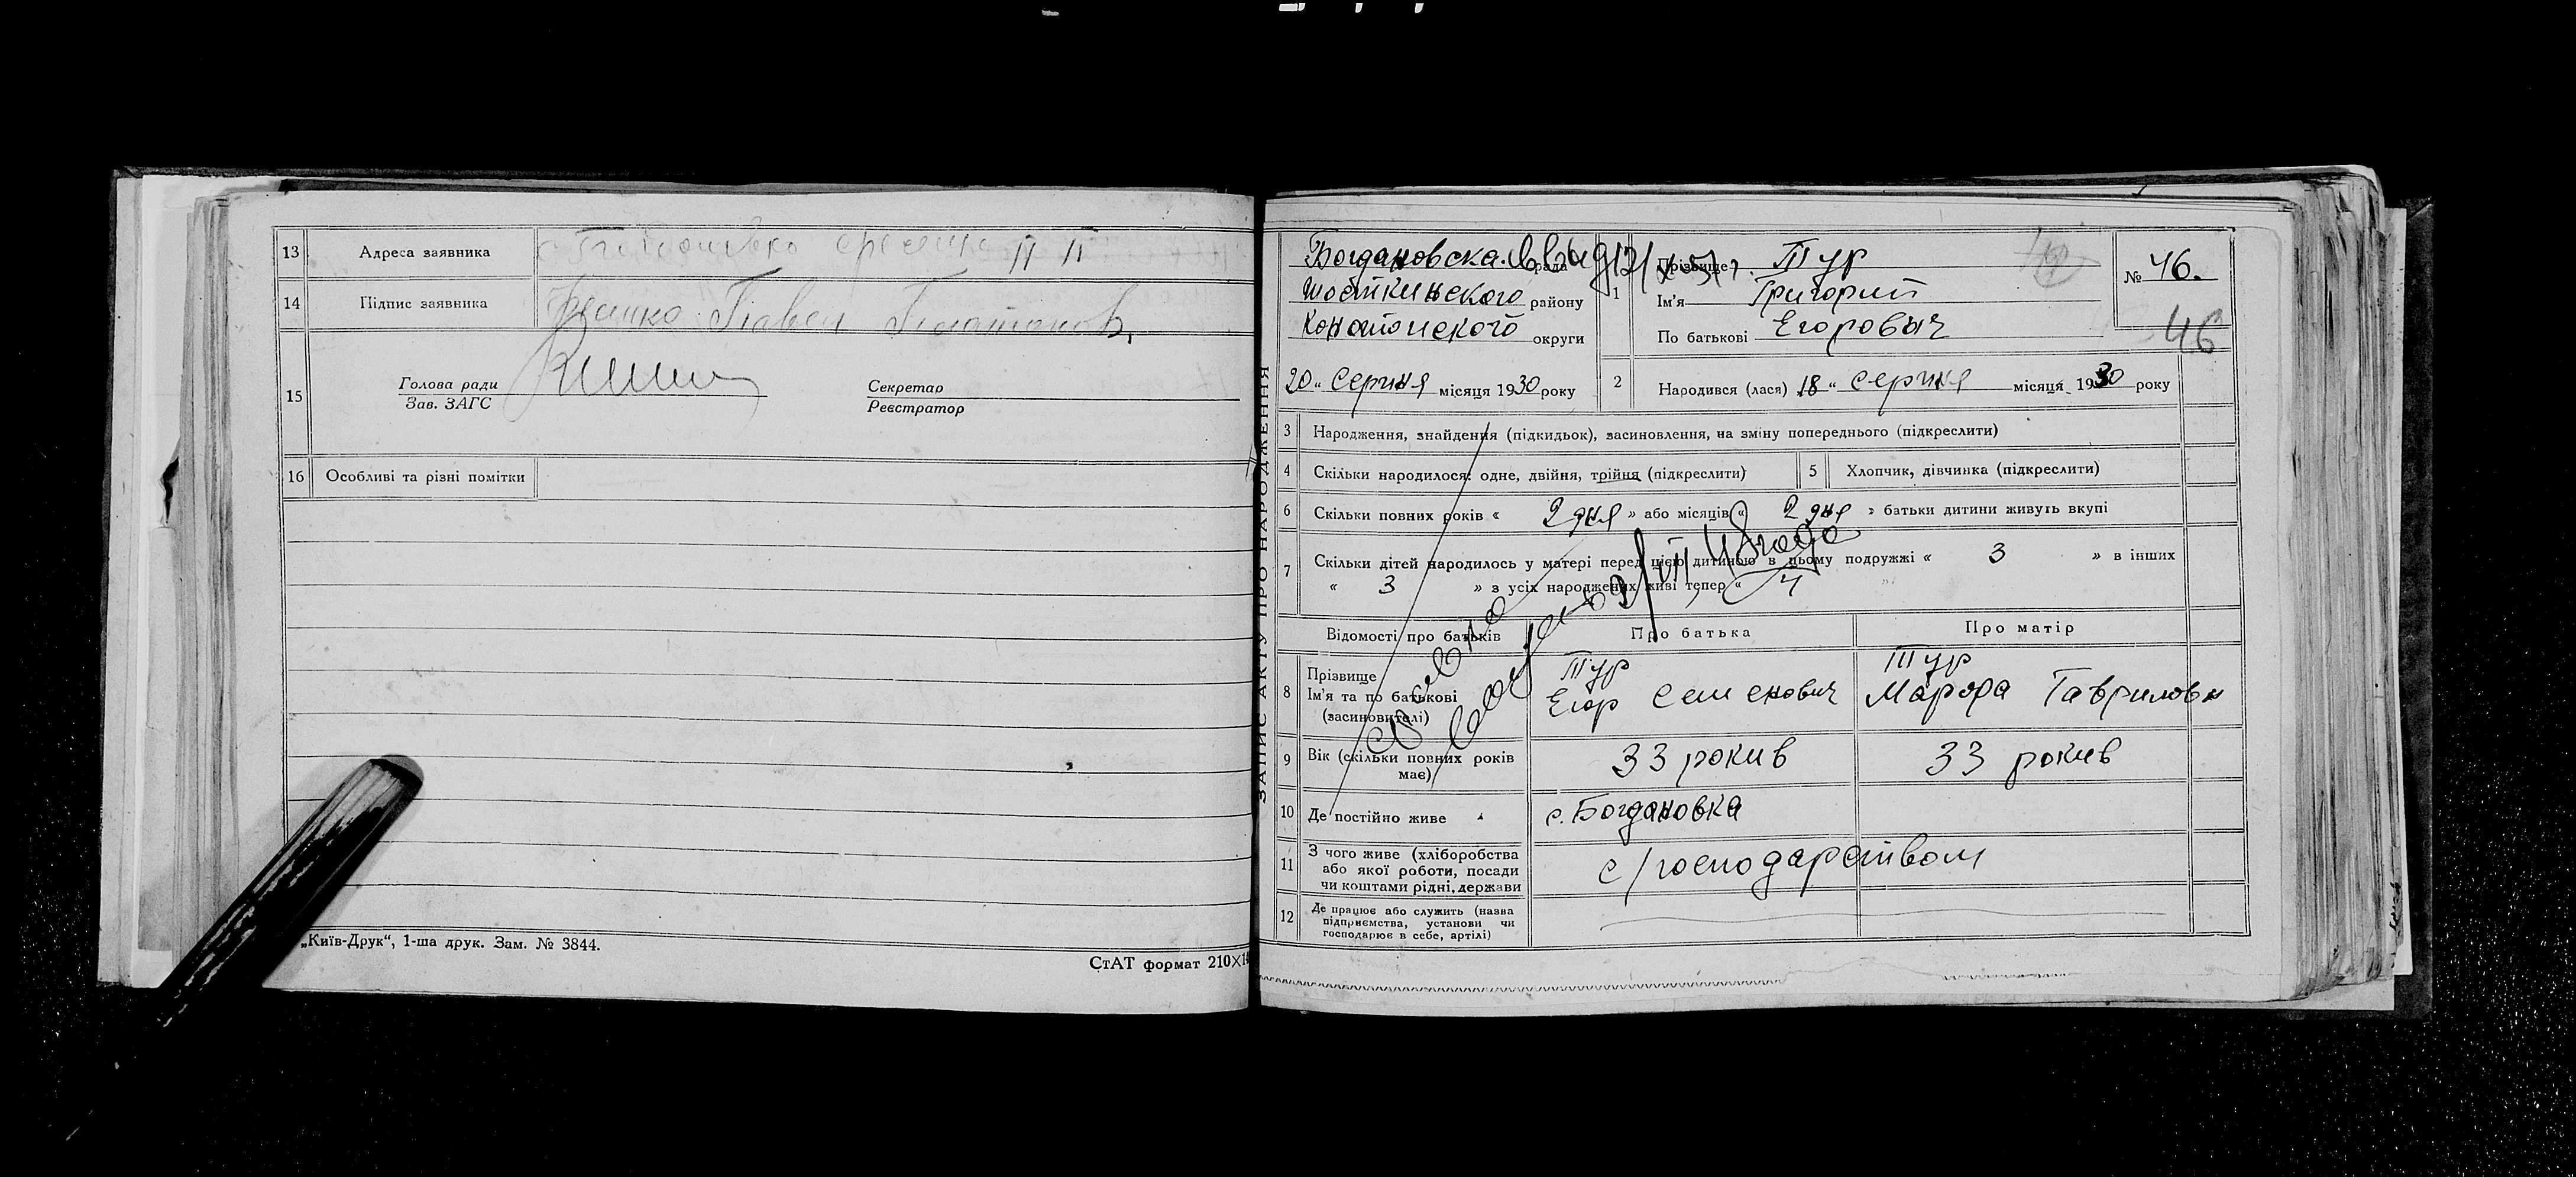 13 Адреса заявника
14 Підпис заявника Павел
15 Голова ради Секретар
Зав. ЗАГС Реєстратор
16 Особливі та різні помітки
„Київ-Друк“, 1-ша друк. Зам. № 3844.
СтАТ формат 210×14
ЗАПИС АКТУ ПРО НАРОДЖЕННЯ
Богдановска рада
Шосткинского району
Конотопского округи
20 „ серпня місяця 1930 року
1 Прізвище Тур
Ім'я Григорий
По батькові Егорович
№ 46.
46
2 Народився (лася) 18 „ серпня місяця 1930 року
3 Народження, знайдення (підкидьок), засиновлення, на зміну попереднього (підкреслити)
4 Скільки народилося: одне, двійня, трійня (підкреслити)
5 Хлопчик, дівчинка (підкреслити)
6 Скільки повних років « 2 дня » або місяців « 2 дня » батьки дитини живуть вкупі
7 Скільки дітей народилось у матері перед цією дитиною в цьому подружжі « 3 » в інших
« 3 » з усіх народжених живі тепер « 4
Відомості про батьків Про батька Про матір
8 Прізвище
Ім'я та по батькові
(засиновителі)
Тур
Егор Семенович
Тур
Марфа Гавриловн
9 Вік (скільки повних років
має)
33 рокив 33 рокив
10 Де постійно живе с. Богдановка
11 З чого живе (хліборобства
або якої роботи, посади
чи коштами рідні, держави
с/господарством
12 Де працює або служить (назва
підприємства, установи чи
господарює в себе, артілі)